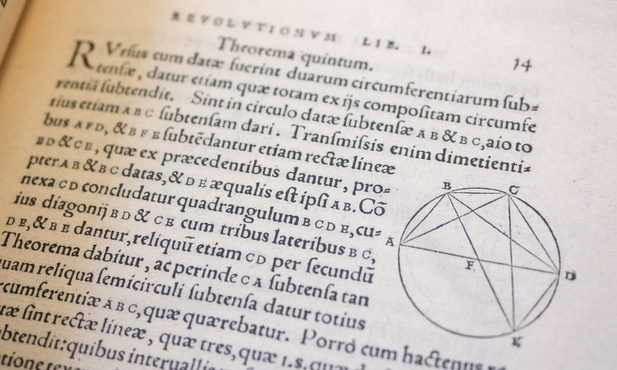 REVOLVTIONVM LIB. I. 14
Theorema quintum.
RVrsus cum datæ fuerint duarum circumferentiarum sub=
tensæ, datur etiam quæ totam ex ijs compositam circumfe
rentiā subtendit. Sint in circulo datæ subtensæ A B & B C, aio to
tius etiam A B C subtensam dari. Transmissis enim dimetienti=
bus A F D, & B F E subtēdantur etiam rectæ lineæ
B D & C E, quæ ex præcedentibus dantur, pro=
pter A B & B C datas, & D E æqualis est ipsi A B. Cō
nexa C D concludatur quadrangulum B C D E, cu=
ius diagonij B D & C E cum tribus lateribus B C,
D E, & B E dantur, reliquū etiam C D per secundū
Theorema dabitur, ac perinde C A subtensa tan
quam reliqua semicirculi subtensa datur totius
circumferentiæ A B C, quæ quærebatur. Porrò cum hactenus
sint rectæ lineæ, quæ tres, quæ 1. s.
quibus interualli
B C
A
F D
E